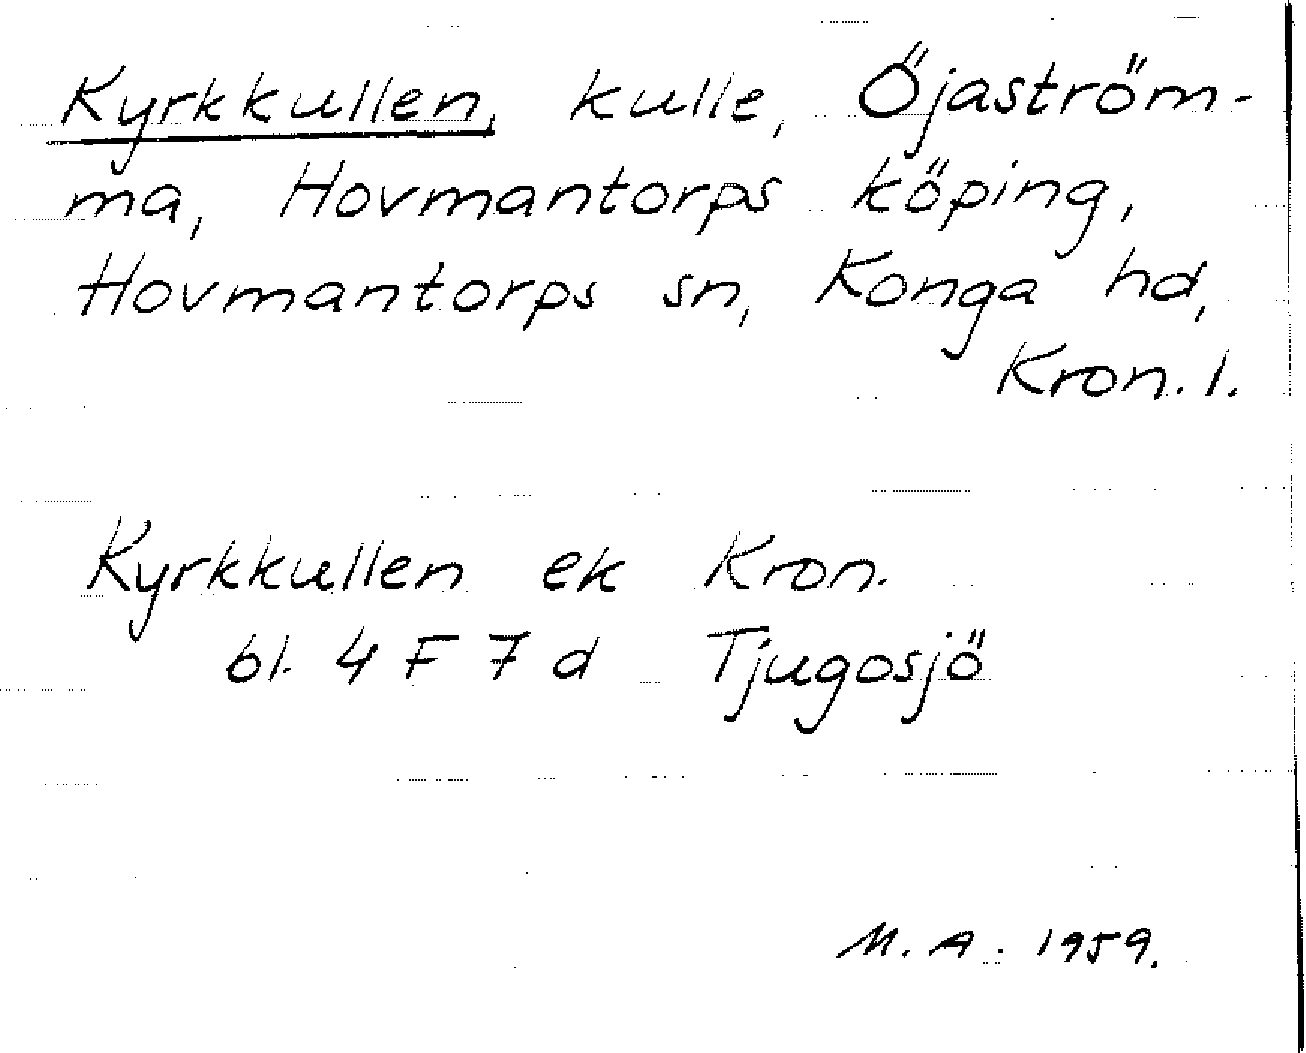 Kyrkkullen, kulle, Öjaström-
ma, Hovmantorps köping,
Hovmantorps sn, Konga hd,
Kron. l.
Kyrkkullen ek Kron.
bl. 4 F 7 d Tjugosjö
M. A. 1959.